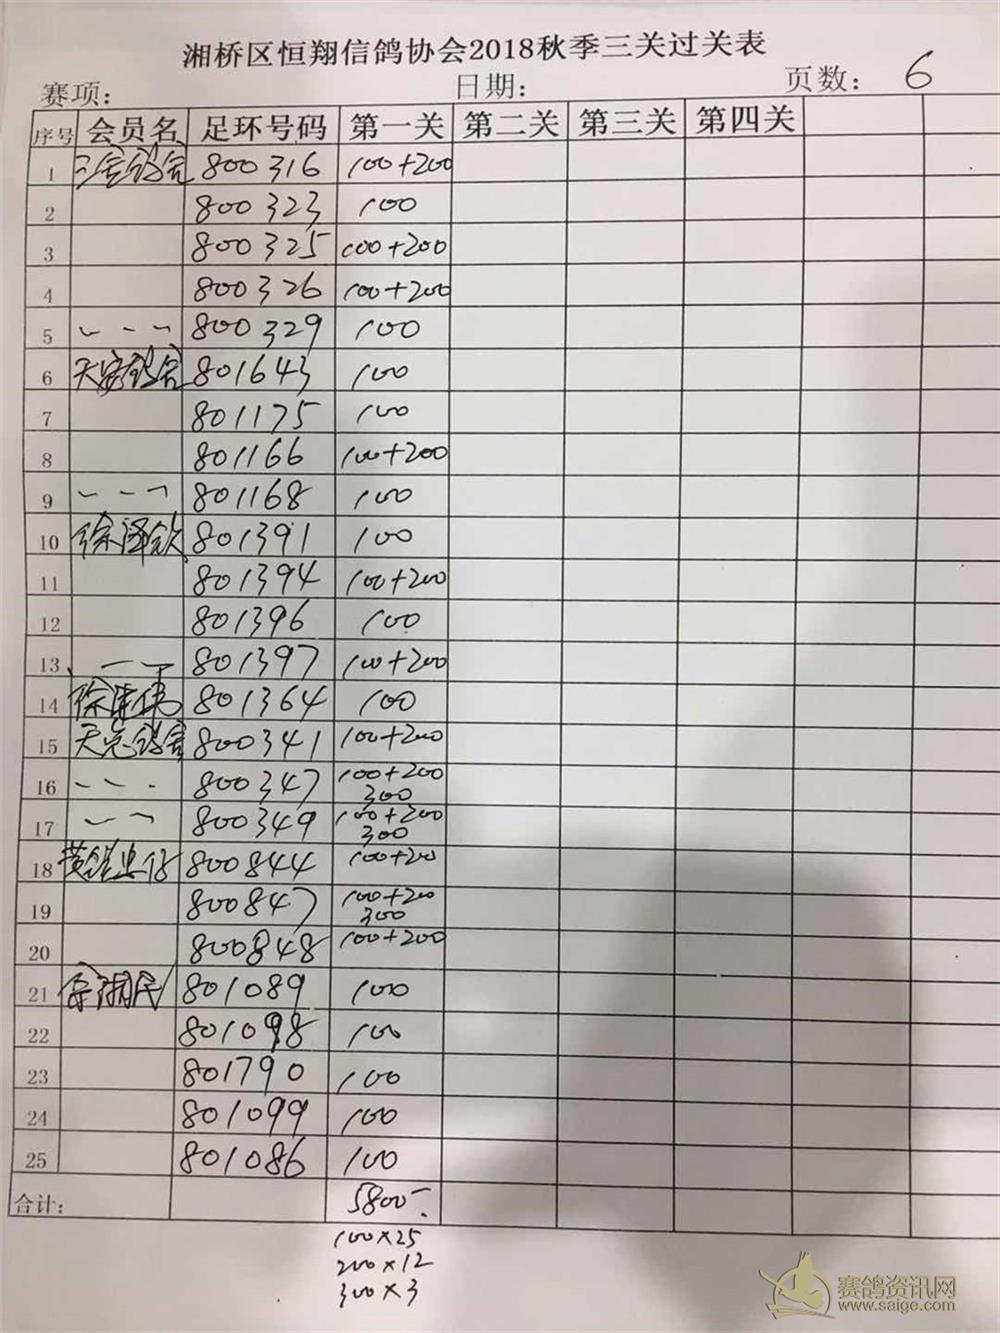 湘桥区恒翔信鸽协会2018秋季三关过关表
赛项: 日期: 页数: 6
序号 会员名 足环号码 第一关 第二关 第三关 第四关
1 800316 100+200
2 800323 100
3 800325 100+200
4 800326 100+200
5 800329 100
6 801643 100
7 801175 100
8 801166 100+200
9 801168 100
10 徐泽钦 801391 100
11 801394 100+200
12 801396 100
13 801397 100+200
14 801364 100
15 800341 100+200
16 800347 100+200
300
17 800349 100+200
300
18 800844 100+20
19 800847 100+200
300
20 800848 100+200
21 801089 100
22 801098 100
23 801790 100
24 801099 100
25 801086 100
合计: 5800-
100×25
200×12
300×3
赛鸽资讯网
www.saige.com